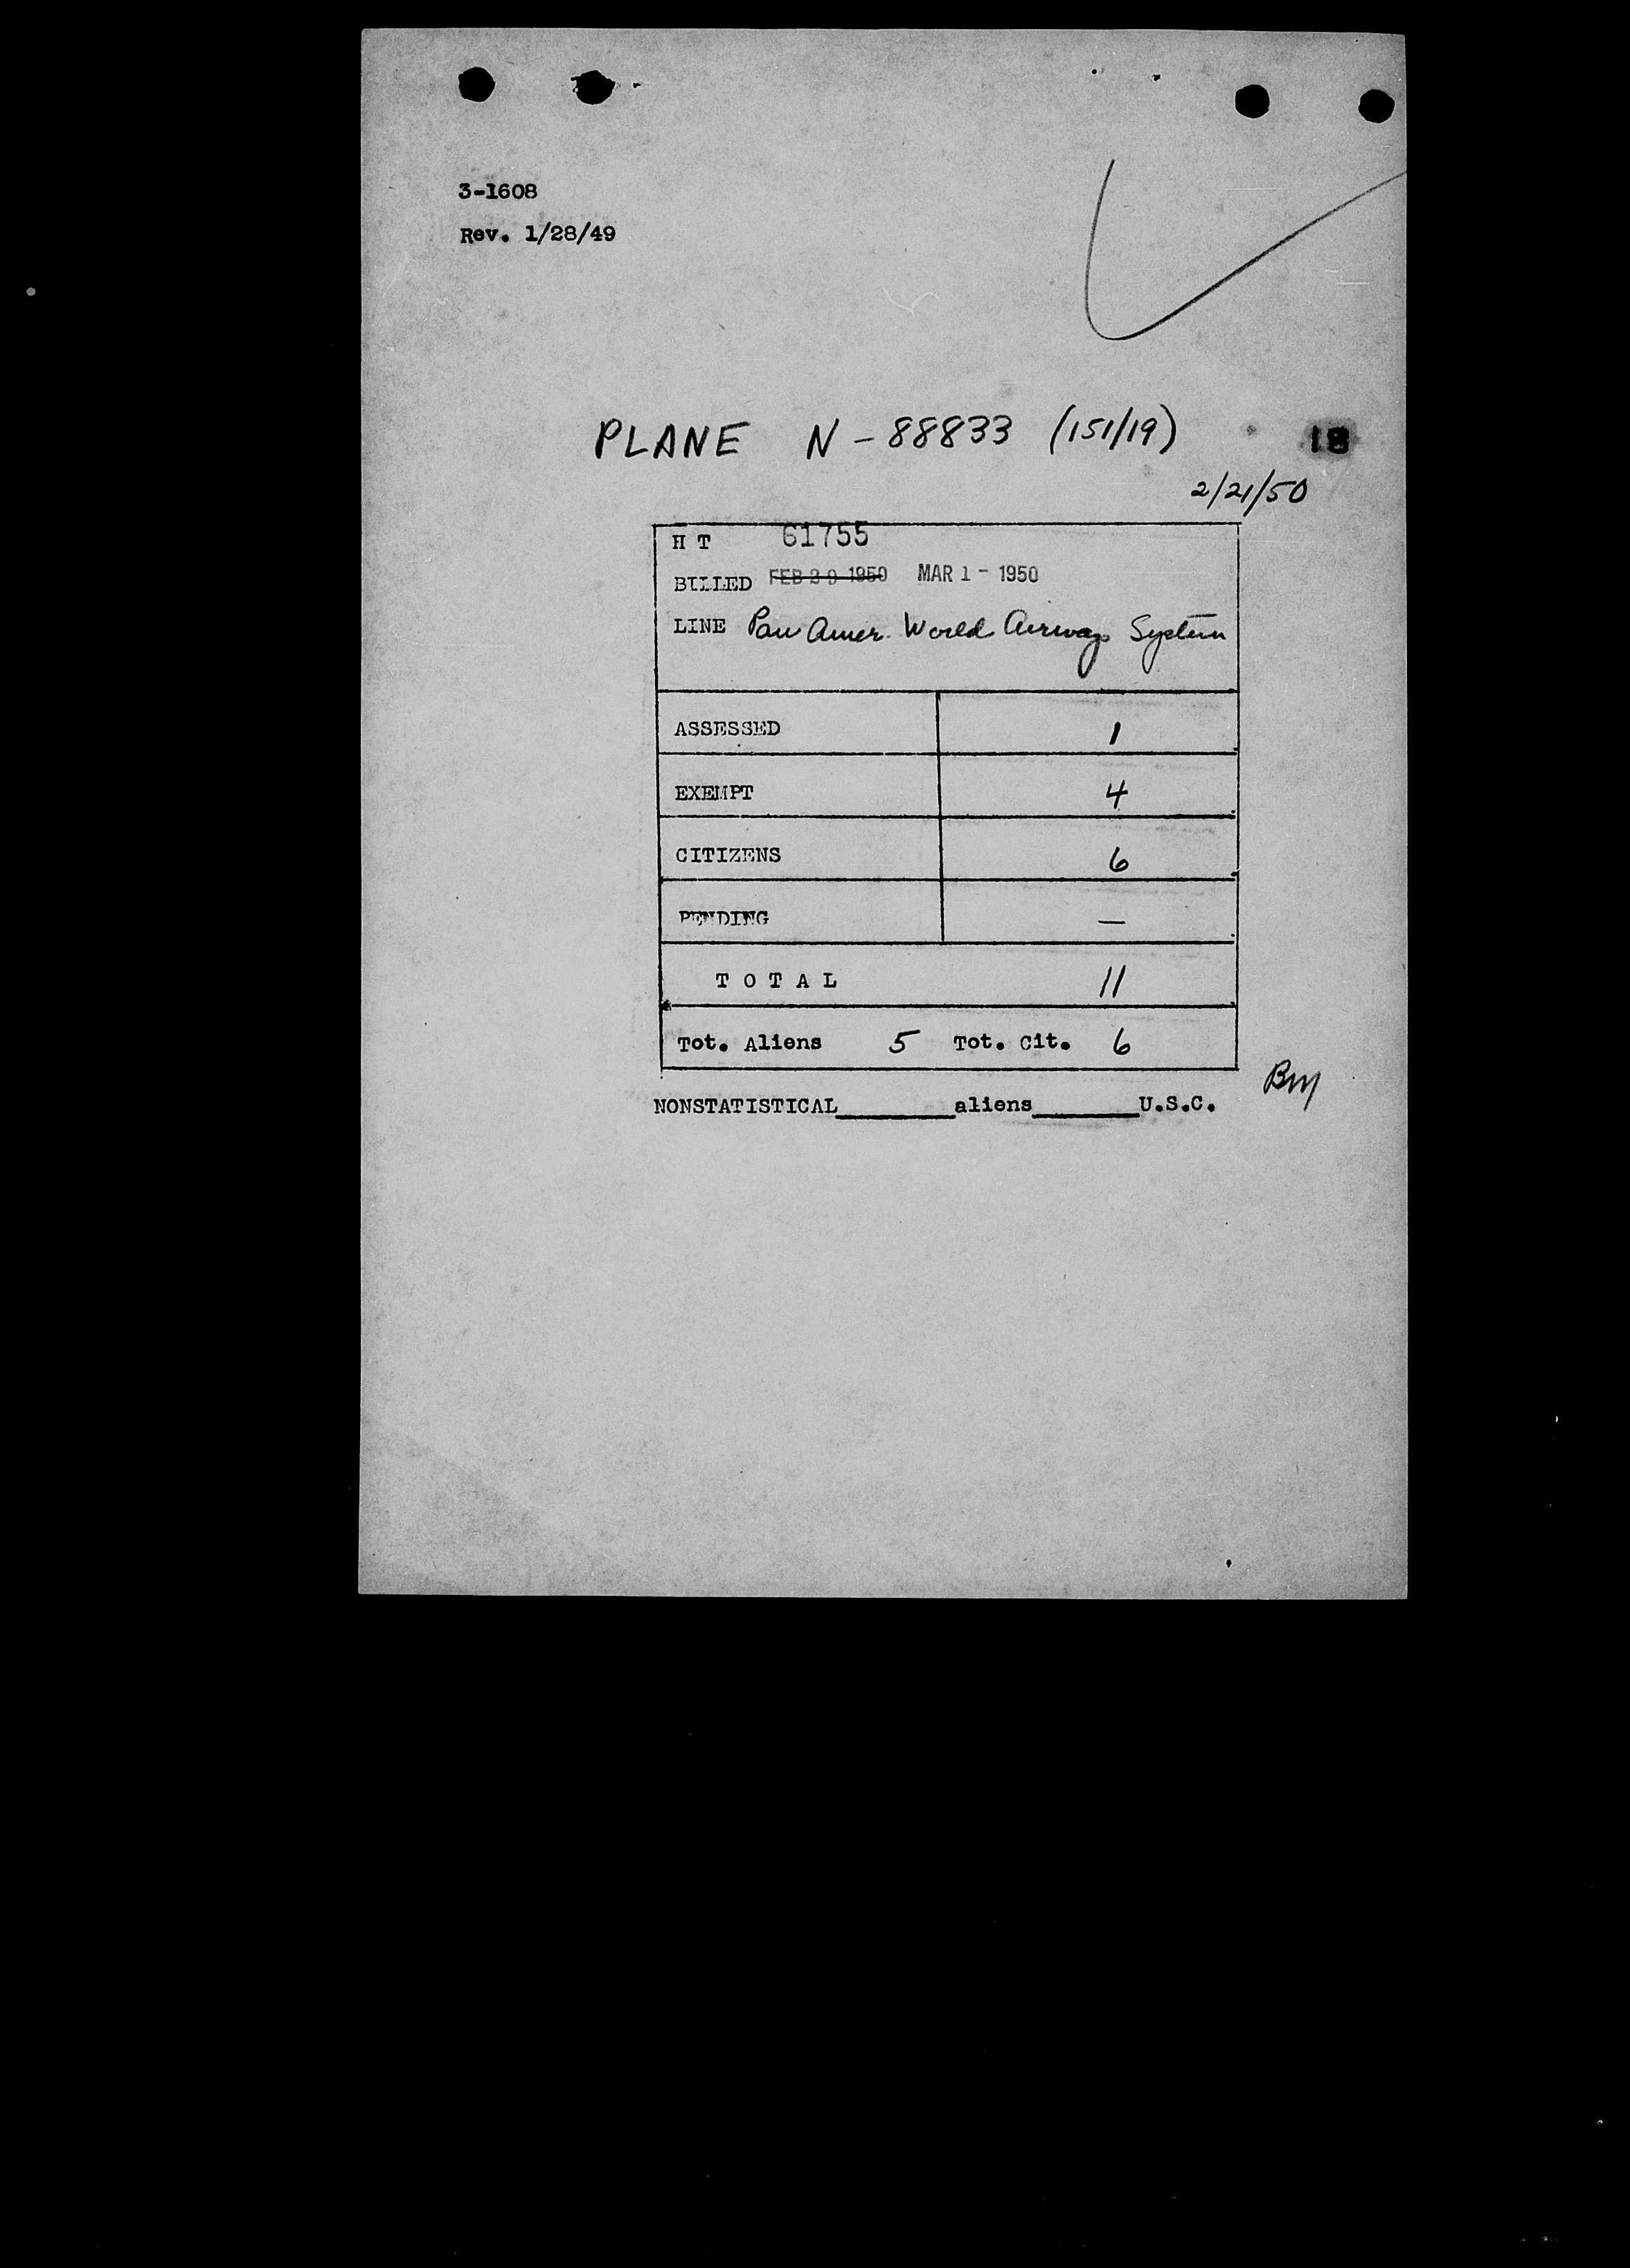 3-1608
Rev. 1/28/49
PLANE N-88833 (151/19) 18
2/21/50
H T 61755
BILLED FEB 29 1950 MAR 1 - 1950
LINE Pan Amer. World Airways System
ASSESSED 1
EXEMPT 4
CITIZENS 6
PENDING —
T O T A L 11
Tot. Aliens 5 Tot. Cit. 6
BM
NONSTATISTICAL________aliens_______U.S.C.